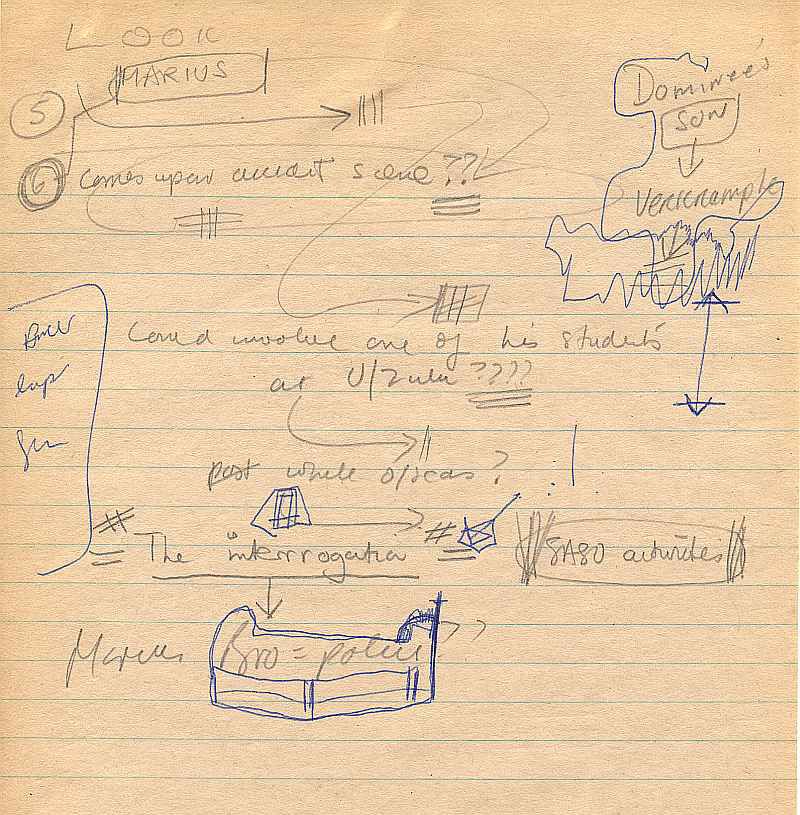 LOOK
MARIUS
5
6 Comes upon accident scene??
Dominee's
SON
Verkrampte
Could involve one of his students
at U/Zulu ????
past while o/seas?
The interrogation
SASO activities
Marius Bro = police ??